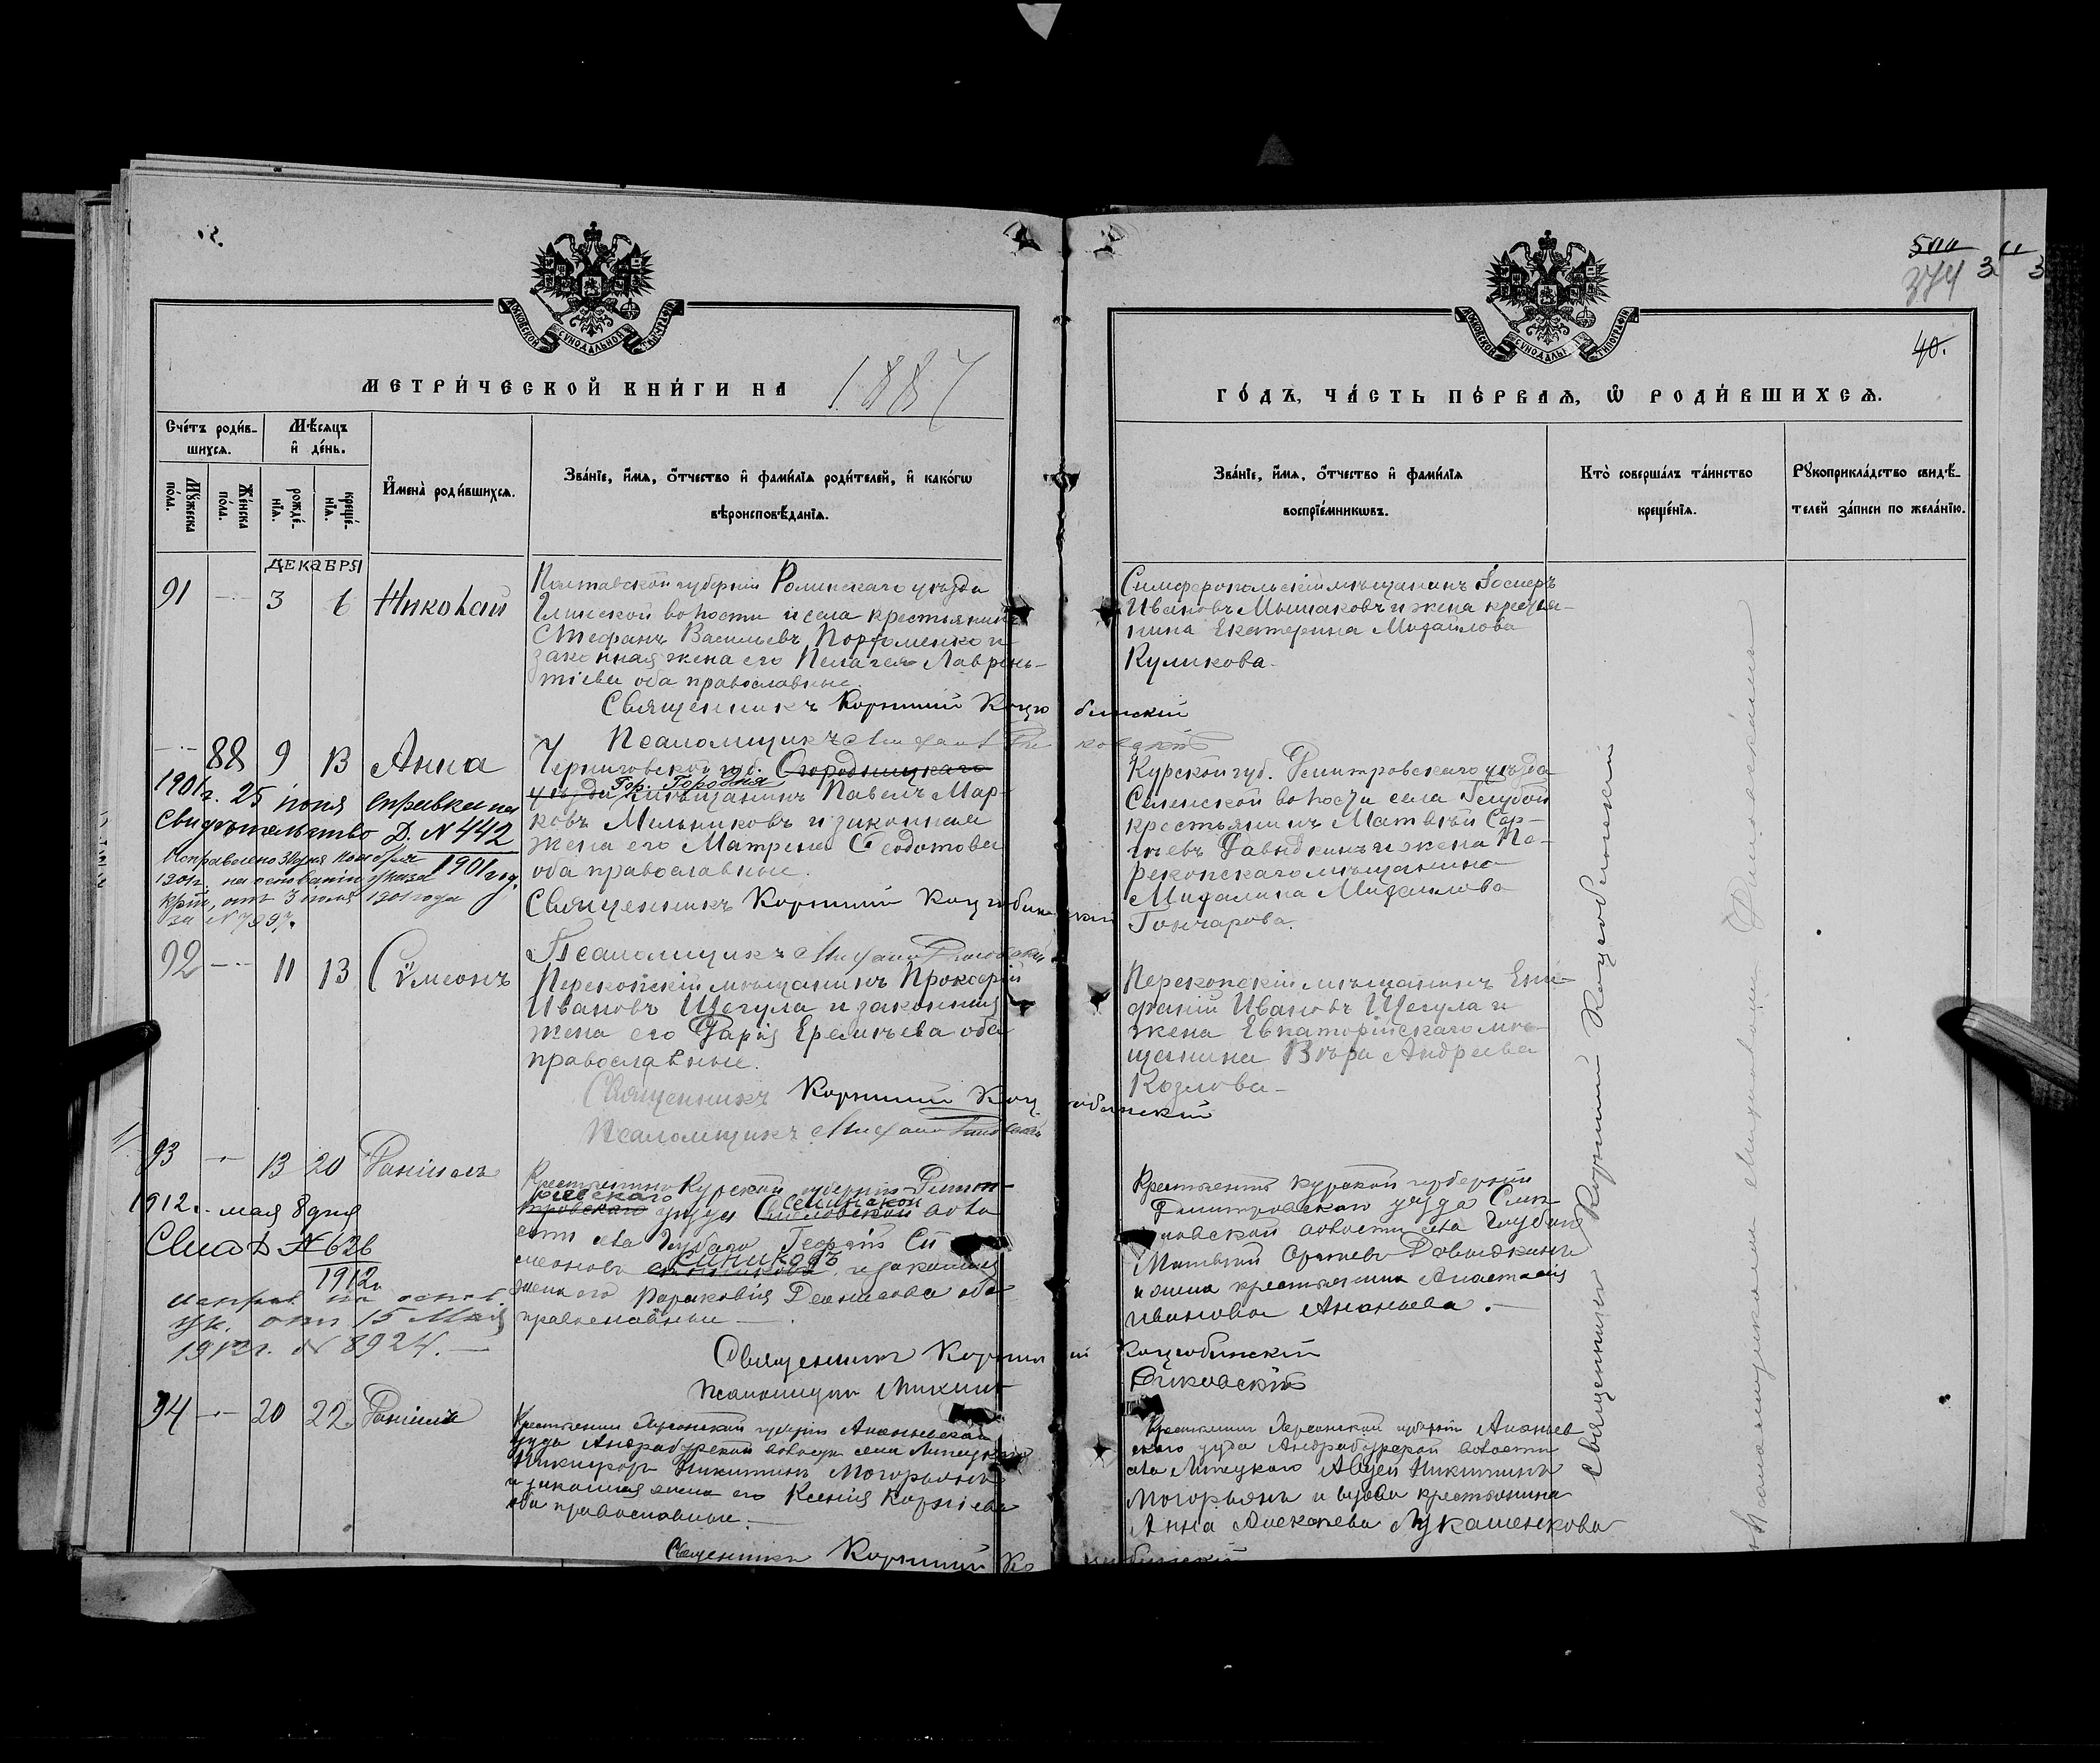 МОСКОВСКОЙ СУНОДАЛЬНОЙ ТИПОГРАФІИ
МЕТРИ́ЧЕСКОЙ КНИ́ГИ НА 1887
Сче́тъ роди́в-
шихсѧ.
Мѣ́сѧцъ
и҆ де́нь.
Мꙋ́жеска
по́ла.
Же́нска
по́ла.
рожде́-
нїѧ.
креще́-
нїѧ.
И҆мена̀ роди́вшихсѧ.
Зва́нїе, и҆́мѧ, ѻ҆́тчество и҆ фами́лїѧ роди́телей, и҆ како́гѡ
вѣроисповѣ́данїѧ.
ДЕКАБРЯ
91 — 3 6 Николай
Полтавской губерніи Роменскаго уѣзда
Глинской волости и села крестьянинъ
Стефанъ Васильевъ Порфоменко и
законная жена его Пелагея Лаврень-
тіева оба православные.
Священникъ Корнилій Коцюбинскій
Псаломщикъ
— 88 9 13 Анна
Черниговской губ. Сгородницкаго
Гор. Городня
уѣзда мѣщанинъ Павелъ Мар-
ковъ Мельниковъ и законная
жена его Матрена Ѳеодотова
оба православные.
Священникъ Корнилій Коцюбинскій
Псаломщикъ
1901 г. 25 іюня справка на
свидѣтельство Д. N 442
1901 год.
Исправлено 30 дня ноября
1901 г. на основаніи указа
отъ 3 1901 года
за N 7997.
92 — 11 13 Сѵмеонъ
Перекопскій мѣщанинъ Прокофій
Ивановъ Щегула и законная
жена его Дарія Еремѣева оба
православные.
Священникъ Корнилій Коцюбинскій
Псаломщикъ
93 — 13 20 Даніилъ
Крестьянинъ Курской губерніи Димит-
ріевскаго Селинской
тровскаго уѣзда Смѣловской воло
сти села Глубаго Георгій Си
Синиковъ
меоновъ и законная
жена его Параковія Деонисова оба
православные —
Священникъ Корнилій Коцюбинскій
Псаломщикъ Михаилъ Диковскій
1912 г. мая 8 дня
Свид. Д. N 626
1912 г.
исправ. на основ.
ук. отъ 15 Мая
1912 г. N 8924. —
94 — 20 22 Даніилъ
Крестьянинъ Херсонской губерніи Ананьевскаго
уѣзда Андрабурской волости села Липецкаго
Никифоръ Никитинъ Могорьянъ
и законная жена его Ксенія Корніева
оба православные. —
Священникъ Корнилій Коцюбинскій
МОСКОВСКОЙ СУНОДАЛЬНОЙ ТИПОГРАФІИ
374
40.
ГО́ДЪ, ЧА́СТЬ ПЕ́РВАѦ, Ѡ҆ РОДИ́ВШИХСѦ.
Зва́нїе, и҆́мѧ, ѻ҆́тчество и҆ фами́лїѧ
воспрїе́мникѡвъ.
Кто̀ соверша́лъ та́инство
креще́нїѧ.
Рꙋкоприкла́дство свидѣ́-
телей за́писи по жела́нїю.
Симферопольскій мѣщанинъ
Ивановъ Мышаковъ и жена крестья-
нина Екатерина Михайлова
Куликова.
Курской губ. Дмитровскаго уѣзда
Селенской волости села Голубой
крестьянинъ Матвѣй Сер-
гѣевъ Давыдкинъ и жена Пе-
рекопскаго мѣщанина
Михалина Михайлова
Гончарова.
Перекопскій мѣщанинъ Епи-
фаній Ивановъ Щегула и
жена Евпаторійскаго мѣ-
щанина Вѣра Андреева
Козлова —
Крестьянинъ Курской губерній
Димитровскаго уѣзда Смѣ
ловской волости села Глубой
Матвѣй Сергѣевъ Давыдкинъ
и жена крестьянина Анастасія
Иванова Ананьева. —
Крестьянинъ Херсонской губерніи Ананьев
скаго уѣзда Андрабурской волости
села Липецкаго Авдей Никитинъ
Могорьянъ и вдова крестьянина
Анна Алексѣева Лукашенкова
Священникъ Корнилій Коцюбинскій
Псаломщикъ Михаилъ Диковскій